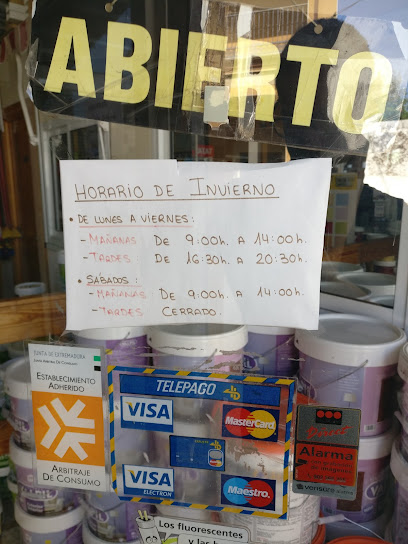 ABIERTO
HORARIO DE INVIERNO
• DE LUNES A VIERNES:
- MAÑANAS DE 9:00h. A 14:00h.
- TARDES DE 16:30h. A 20:30h.
• SÁBADOS:
- MAÑANAS DE 9:00h. A 14:00h.
- TARDES CERRADO.
JUNTA DE EXTREMADURA
ESTABLECIMIENTO
ADHERIDO
ARBITRAJE
DE CONSUMO
TELEPAGO
VISA
MasterCard
VISA
ELECTRON
Maestro
Alarma
Los fluorescentes